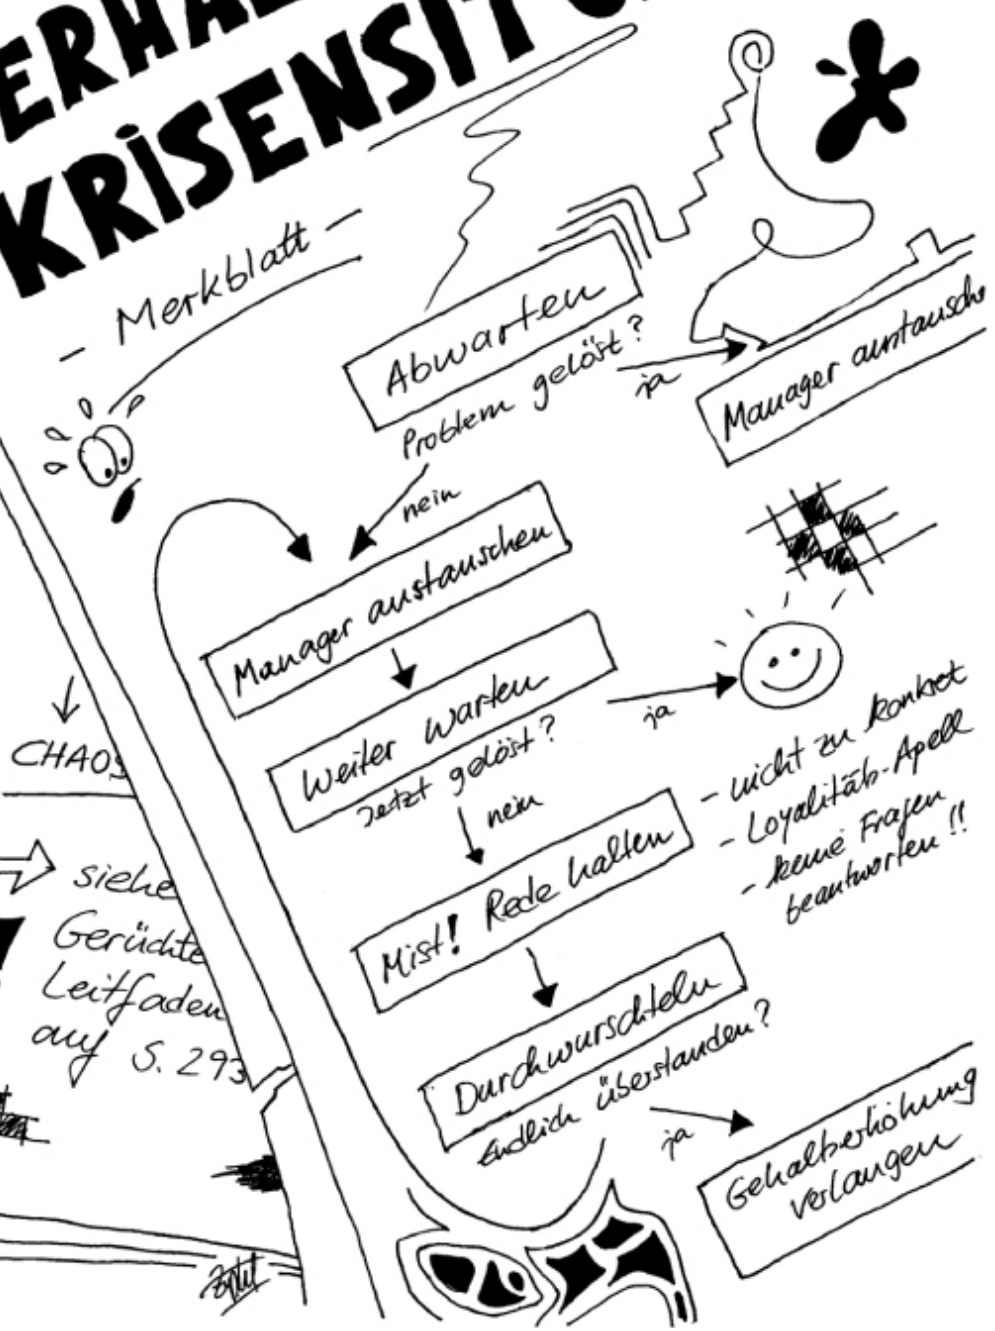 ERHAL
KRISENSIT
- Merkblatt -
Abwarten
Problem gelöst?
ja
Manager austausche
nein
Manager austauschen
Weiter warten
Jetzt gelöst?
ja
nein
- nicht zu konkret
- Loyalitäts-Apell
- keine Fragen
beantworten!!
Mist! Rede halten
Durchwurschteln
Endlich überstanden?
ja
Gehaltserhöhung
verlangen
CHAOS
siehe
Gerüchte
Leitfaden
auf S. 293